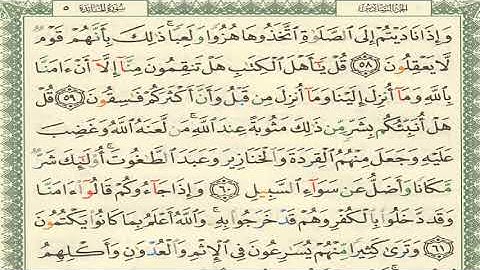 الجزء السادس ٥ سورة المائدة
وَإِذَا نَادَيْتُمْ إِلَى ٱلصَّلَوٰةِ ٱتَّخَذُوهَا هُزُوًا وَلَعِبًا ۚ ذَٰلِكَ بِأَنَّهُمْ قَوْمٌ
لَّا يَعْقِلُونَ ٥٨ قُلْ يَـٰٓأَهْلَ ٱلْكِتَـٰبِ هَلْ تَنقِمُونَ مِنَّآ إِلَّآ أَنْ ءَامَنَّا
بِٱللَّهِ وَمَآ أُنزِلَ إِلَيْنَا وَمَآ أُنزِلَ مِن قَبْلُ وَأَنَّ أَكْثَرَكُمْ فَـٰسِقُونَ ٥٩ قُلْ
هَلْ أُنَبِّئُكُم بِشَرٍّ مِّن ذَٰلِكَ مَثُوبَةً عِندَ ٱللَّهِ ۚ مَن لَّعَنَهُ ٱللَّهُ وَغَضِبَ
عَلَيْهِ وَجَعَلَ مِنْهُمُ ٱلْقِرَدَةَ وَٱلْخَنَازِيرَ وَعَبَدَ ٱلطَّـٰغُوتَ ۚ أُو۟لَـٰٓئِكَ شَرٌّ
مَّكَانًا وَأَضَلُّ عَن سَوَآءِ ٱلسَّبِيلِ ٦٠ وَإِذَا جَآءُوكُمْ قَالُوٓا۟ ءَامَنَّا
وَقَد دَّخَلُوا۟ بِٱلْكُفْرِ وَهُمْ قَدْ خَرَجُوا۟ بِهِۦ ۚ وَٱللَّهُ أَعْلَمُ بِمَا كَانُوا۟ يَكْتُمُونَ
٦١ وَتَرَىٰ كَثِيرًا مِّنْهُمْ يُسَـٰرِعُونَ فِى ٱلْإِثْمِ وَٱلْعُدْوَٰنِ وَأَكْلِهِمُ